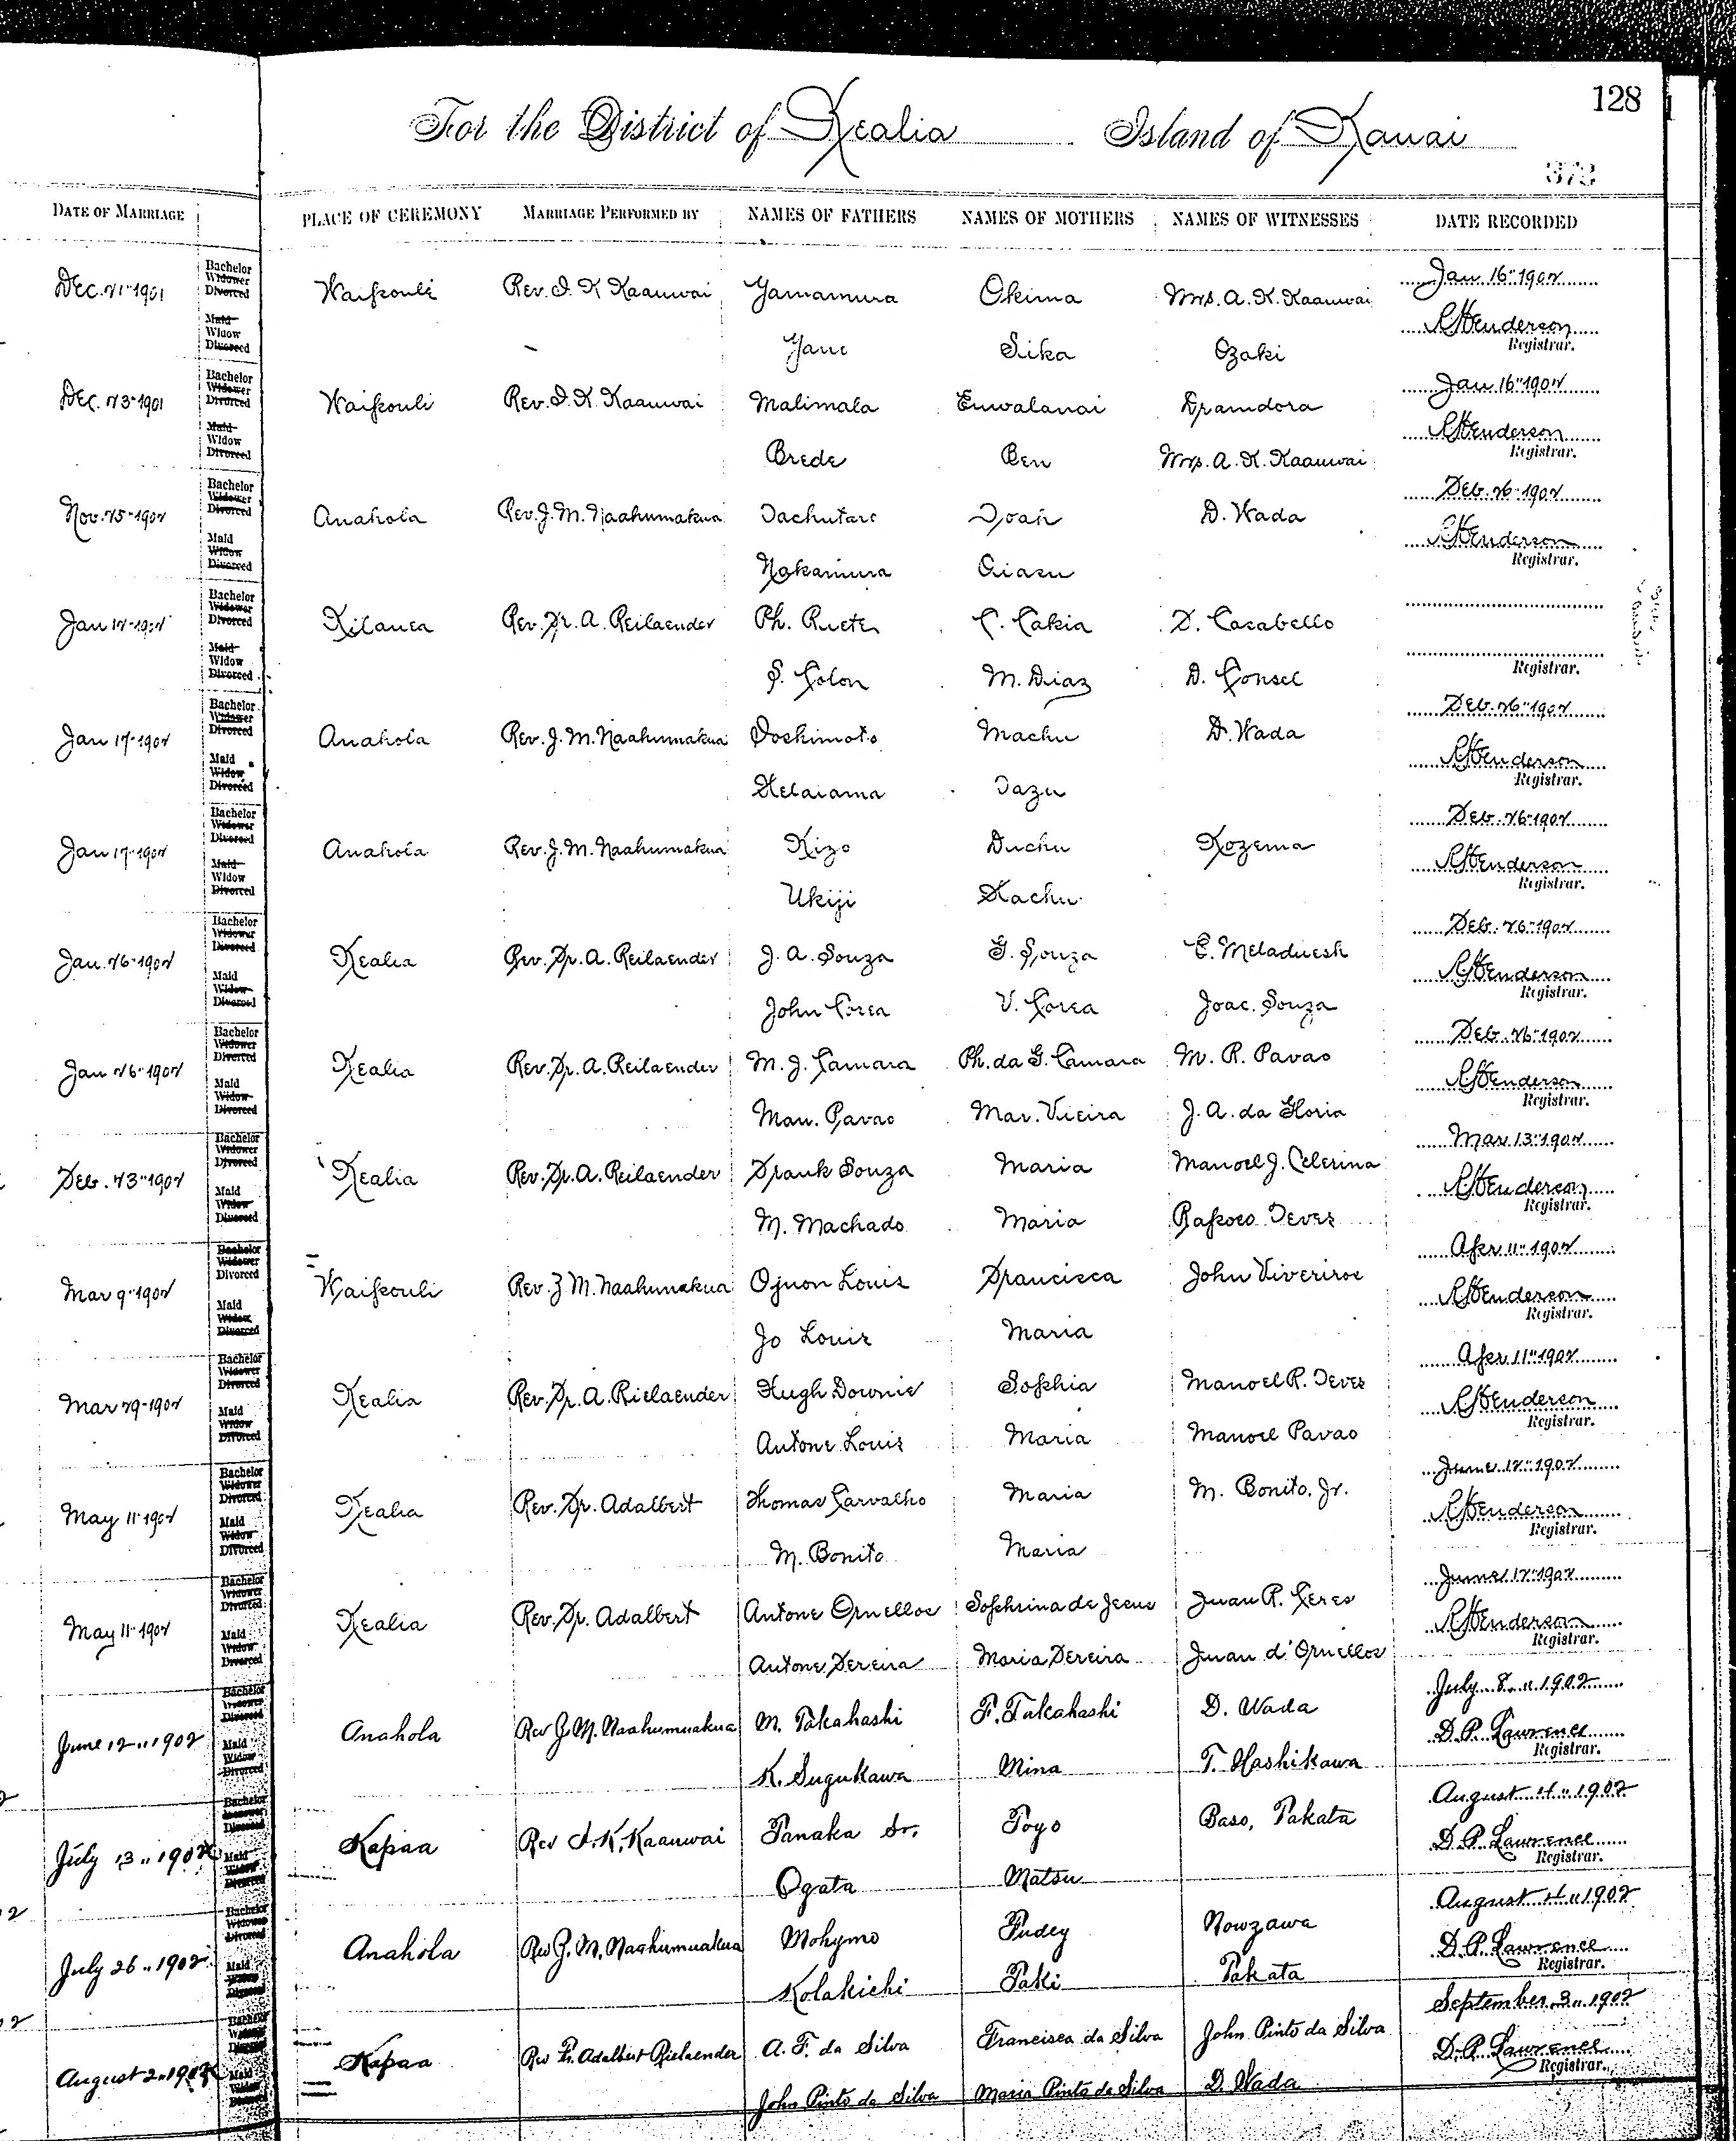 128
For the District of Kealia Island of Kauai
373
DATE OF MARRIAGE PLACE OF CEREMONY MARRIAGE PERFORMED BY NAMES OF FATHERS NAMES OF MOTHERS NAMES OF WITNESSES DATE RECORDED
Dec. 21" 1901 Bachelor Widower Divorced Waipouli Rev. I. K. Kaauwai Yamamura Okima Mrs. A. K. Kaauwai Jan 16" 1902
Maid Widow Divorced Yane Sika Ozaki RHenderson Registrar.
Dec. 23" 1901 Bachelor Widower Divorced Waipouli Rev. I. K. Kaauwai Malimala Enwalanai Framdora Jan 16" 1902
Maid Widow Divorced Brede Ben Mrs. A. K. Kaauwai RHenderson Registrar.
Nov. 25" 1902 Bachelor Widower Divorced Anahola Rev. J. M. Naahumakua Tachutaro Toah D. Wada Feb. 26" 1902
Maid Widow Divorced Nakamura Aiasu RHenderson Registrar.
Jan 12" 1902 Bachelor Widower Divorced Kilauea Rev. Fr. A. Reilaender Ph. Ruete C. Cakia F. Casabello
Maid Widow Divorced S. Colon M. Diaz D. Consel Registrar.
Jan 17" 1902 Bachelor Widower Divorced Anahola Rev. J. M. Naahumakua Yoshimoto Machu D. Wada Feb. 26" 1902
Maid Widow Divorced Helaiama Tazu RHenderson Registrar.
Jan 17" 1902 Bachelor Widower Divorced Anahola Rev. J. M. Naahumakua Kizo Duchu Kozema Feb. 26" 1902
Maid Widow Divorced Ukiji Kachu RHenderson Registrar.
Jan. 26" 1902 Bachelor Widower Divorced Kealia Rev. Fr. A. Reilaender J. A. Souza G. Souza C. Meladuesh Feb. 26" 1902
Maid Widow Divorced John Corea V. Corea Joac. Souza RHenderson Registrar.
Jan 26" 1902 Bachelor Widower Divorced Kealia Rev. Fr. A. Reilaender M. J. Camara Ph. da G. Camara M. R. Pavao Feb. 26" 1902
Maid Widow Divorced Man. Pavao Mar. Vieira J. A. da Gloria RHenderson Registrar.
Feb. 23" 1902 Bachelor Widower Divorced Kealia Rev. Fr. A. Reilaender Frank Souza Maria Manoel J. Celerina Mar 13" 1902
Maid Widow Divorced M. Machado Maria Rapozo Teves RHenderson Registrar.
Mar 9" 1902 Bachelor Widower Divorced Waipouli Rev. J. M. Naahumakua Ojnon Louis Francisca John Viveriros Apr 11" 1902
Maid Widow Divorced Jo Louis Maria RHenderson Registrar.
Mar 29" 1902 Bachelor Widower Divorced Kealia Rev. Fr. A. Rielaender Hugh Downie Sophia Manoel R. Teves Apr 11" 1902
Maid Widow Divorced Antone Louis Maria Manoel Pavao RHenderson Registrar.
May 11" 1902 Bachelor Widower Divorced Kealia Rev. Fr. Adalbert Thomas Carvalho Maria M. Bonito. Jr. June 12" 1902
Maid Widow Divorced M. Bonito Maria RHenderson Registrar.
May 11" 1902 Bachelor Widower Divorced Kealia Rev. Fr. Adalbert Antone Ornellos Sophrina de Jesus Juan R. Xeres June 12" 1902
Maid Widow Divorced Antone Pereira Maria Pereira Juan d'Ornellos RHenderson Registrar.
June 12" 1902 Bachelor Widower Divorced Anahola Rev J. M. Naahumuakua M. Takahashi F. Takahashi D. Wada July 8" 1902
Maid Widow Divorced K. Sugukawa Mina T. Hashikawa D. P. Lawrence Registrar.
July 13" 1902 Bachelor Widower Divorced Kapaa Rev I. K. Kaauwai Tanaka Sr. Toyo Baso, Takata August 4" 1902
Maid Widow Divorced Ogata Matsu D. P. Lawrence Registrar.
July 26" 1902 Bachelor Widower Divorced Anahola Rev J. M. Naahumuakua Mohymo Fudey Nowzawa August 4" 1902
Maid Widow Divorced Kolakichi Taki Takata D. P. Lawrence Registrar.
August 2" 1902 Bachelor Widower Divorced Kapaa Rev Fr. Adalbert Rielaender A. F. da Silva Francisca da Silva John Pinto da Silva September 3" 1902
Maid Widow Divorced John Pinto da Silva Maria Pinto da Silva D. Wada D. P. Lawrence Registrar.